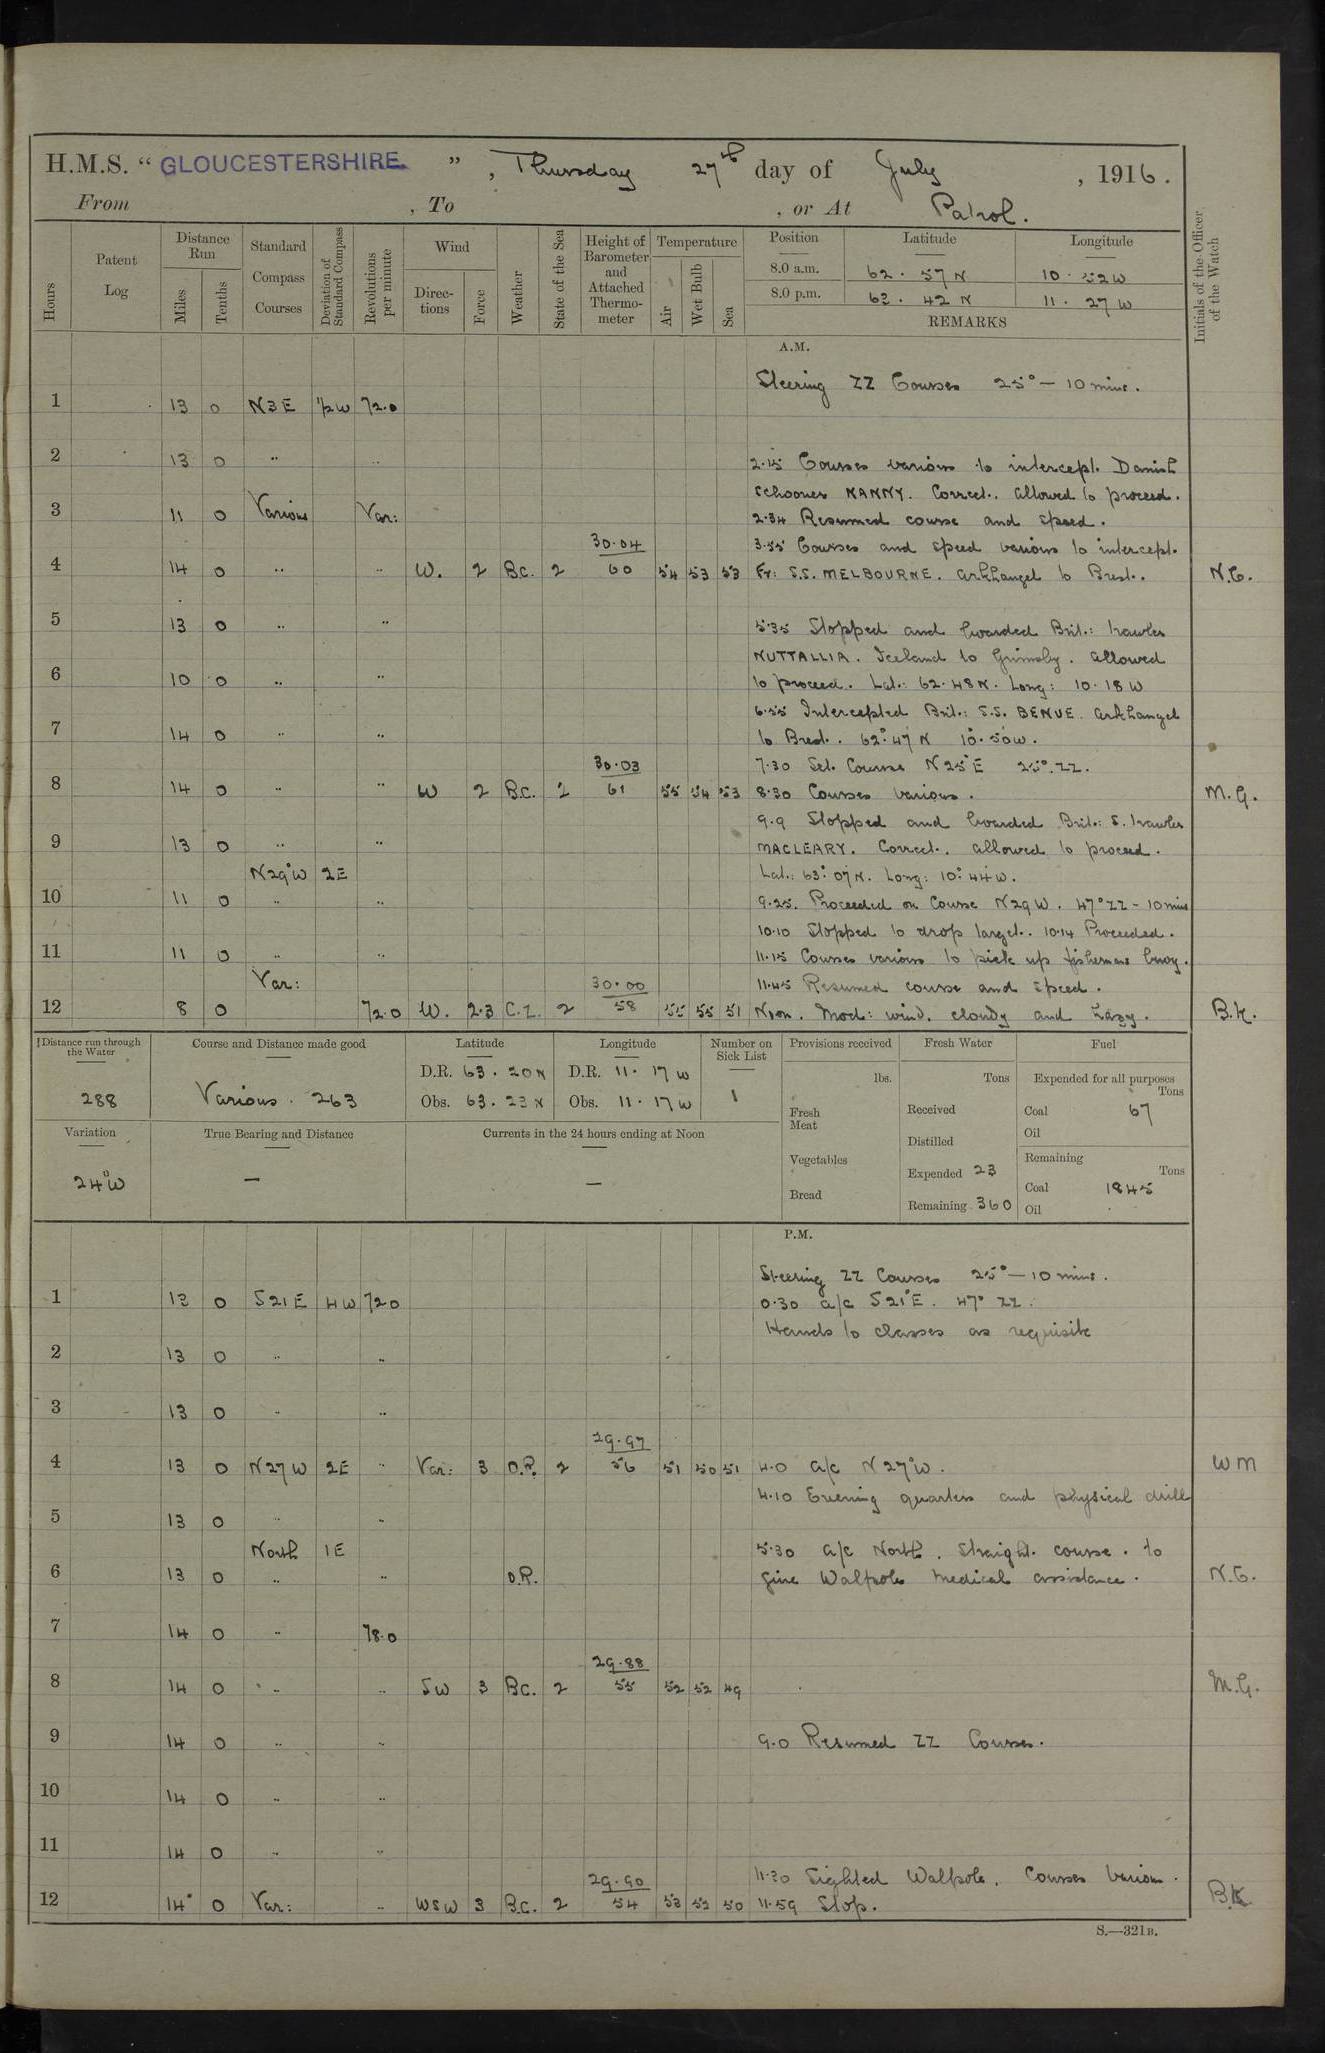 H.M.S. “ GLOUCESTERSHIRE ” , Thursday 27th day of July , 1916.
From , To , or At Patrol.
Hours
Patent Log
Distance Run
Miles
Tenths
Standard Compass Courses
Deviation of Standard Compass
Revolutions per minute
Wind
Direc-tions
Force
Weather
State of the Sea
Height of Barometer and Attached Thermo-meter
Temperature
Air
Wet Bulb
Sea
Position Latitude Longitude
8.0 a.m. 62 . 57 N 10 . 52 W
8.0 p.m. 63 . 42 N 11 . 27 W
REMARKS
Initials of the Officer of the Watch
A.M.
Steering ZZ Courses 25° – 10 mins.
1 13 0 N3E ½W 72.0
2 13 0 " "
2.15 Courses various to intercept Danish
Schooner NANNY. Correct. Allowed to proceed.
3 11 0 Various Var:
2.34 Resumed course and speed.
30.04
3.55 Courses and speed various to intercept
4 14 0 " " W. 2 B.C. 2 60 54 53 53 Fr: S.S. MELBOURNE. Archangel to Brest. N.C.
5 13 0 " "
5.35 Stopped and boarded Brit: trawler
NUTTALLIA. Iceland to Grimsby. Allowed
6 10 0 " "
to proceed. Lat: 62.48N. Long: 10.18W
6.55 Intercepted Brit: S.S. BENUE. Archangel
7 14 0 " "
to Brest. 62°.47 N 10°.50W.
30.03
7.30 Set Course N25°E 25°.ZZ.
8 14 0 " " W 2 B.C. 2 61 55 54 53 8.30 Courses various. M.G.
9.9 Stopped and boarded Brit: S. trawler
9 13 0 " "
MACLEARY. Correct. Allowed to proceed.
N29°W 2E
Lat: 63°.07N. Long: 10°.44W.
10 11 0 " "
9.25. Proceeded on Course N29W. 47°ZZ - 10 mins
10.10 Stopped to drop target. 10.14 Proceeded.
11 11 0 " "
11.15 Courses various to pick up fishermans buoy.
Var:
30.00
11.45 Resumed course and speed.
12 8 0 72.0 W. 2.3 C.Z. 2 58 55 55 51 Noon. Mod: wind. cloudy and hazy. B.K.
Distance run through the Water
288
Course and Distance made good
Various. 263
Latitude
D.R. 63 . 20 N
Obs. 63 . 23 N
Longitude
D.R. 11 . 17 W
Obs. 11 . 17 W
Number on Sick List
1
Provisions received
lbs.
Fresh Meat
Vegetables
Bread
Fresh Water
Tons
Received
Distilled
Expended 23
Remaining 360
Fuel
Expended for all purposes
Tons
Coal 67
Oil
Remaining
Tons
Coal 1845
Oil
Variation
24°W
True Bearing and Distance
—
Currents in the 24 hours ending at Noon
—
P.M.
Steering ZZ Courses 25° – 10 mins.
1 13 0 S21E 4W 72.0 0.30 a/c S21°E. 47° ZZ.
Hands to classes as requisite
2 13 0 " "
3 13 0 " "
29.97
4 13 0 N27W 2E " Var: 3 O.R. 2 56 51 50 51 4.0 a/c N27°W. WM
4.10 Evening quarters and physical drill
5 13 0 " "
North 1E
5.30 a/c North. Straight course. to
6 13 0 " " O.R. give Walpole medical assistance. N.C.
7 14 0 " 78.0
29.88
8 14 0 " " SW 3 B.C. 2 55 52 52 49 M.G.
9 14 0 " " 9.0 Resumed ZZ Courses.
10 14 0 " "
11 14 0 " "
29.90
11.30 Sighted Walpole. Courses various.
12 14 0 Var: " WSW 3 B.C. 2 54 53 52 50 11.59 Stop. B.K.
S.—321B.